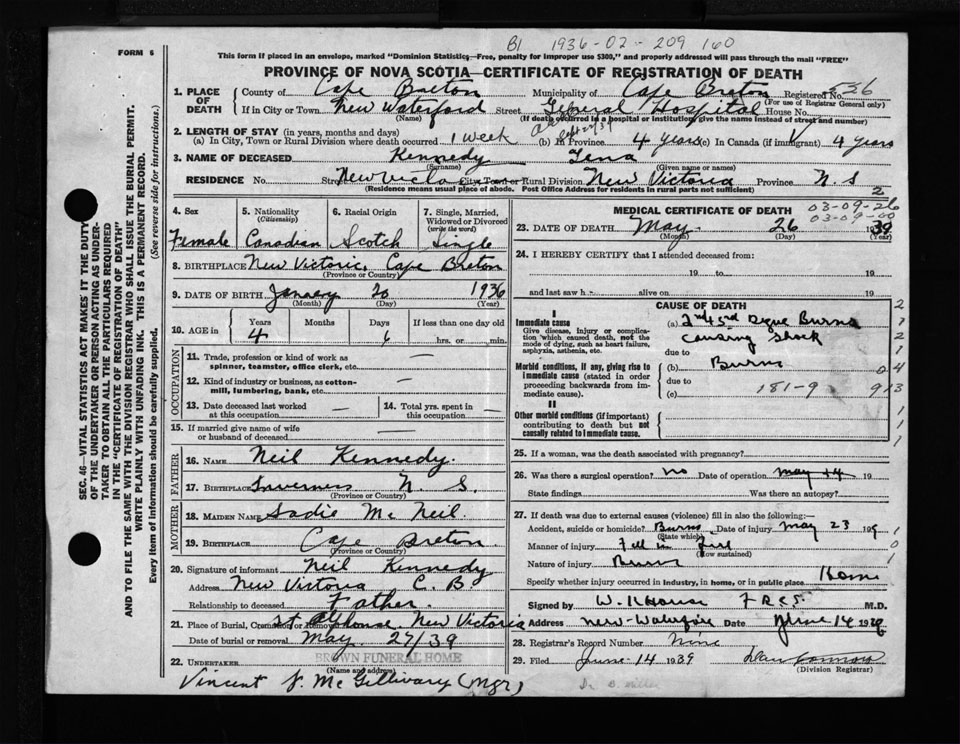 B1 1936-02-209 160
FORM 6
This form if placed in an envelope, marked "Dominion Statistics—Free, penalty for improper use $300," and properly addressed will pass through the mail "FREE"
PROVINCE OF NOVA SCOTIA—CERTIFICATE OF REGISTRATION OF DEATH
1. PLACE OF DEATH
County of Cape Breton Municipality of Cape Breton Registered No. 526
(For use of Registrar General only)
If in City or Town New Waterford Street General Hospital House No.
(Name) (If death occurred in a hospital or institution, give the name instead of street and number)
2. LENGTH OF STAY (in years, months and days)
(a) In City, Town or Rural Division where death occurred 1 week (b) In Province 4 years (c) In Canada (if immigrant) 4 years
3. NAME OF DECEASED Kennedy Tena
(Surname) (Given name or names)
RESIDENCE No. Street New Victoria City, Town or Rural Division New Victoria Province N.S
(Residence means usual place of abode. Post Office Address for residents in rural parts not sufficient) 2
4. Sex Female
5. Nationality (Citizenship) Canadian
6. Racial Origin Scotch
7. Single, Married, Widowed or Divorced (write the word) Single
8. BIRTHPLACE New Victoria, Cape Breton
(Province or Country)
9. DATE OF BIRTH Janury 20 1936
(Month) (Day) (Year)
10. AGE in Years Months Days If less than one day old
4 6 hrs. or min.
OCCUPATION
11. Trade, profession or kind of work as spinner, teamster, office clerk, etc. —
12. Kind of industry or business, as cotton-mill, lumbering, bank, etc. —
13. Date deceased last worked at this occupation —
14. Total yrs. spent in this occupation —
15. If married give name of wife or husband of deceased —
FATHER
16. NAME Neil Kennedy.
17. BIRTHPLACE Inverness N. S.
(Province or Country)
MOTHER
18. MAIDEN NAME Sadie Mc Neil.
19. BIRTHPLACE Cape Breton
(Province or Country)
20. Signature of informant Neil Kennedy
Address New Victoria C. B
Relationship to deceased Father.
21. Place of Burial, Cremation or Removal St Alphonse. New Victoria
Date of burial or removal May 27/39
22. UNDERTAKER BROWN FUNERAL HOME
(Name and address)
Vincent J. McGillivary (Mgr)
MEDICAL CERTIFICATE OF DEATH
03-09-26
03-09-00
23. DATE OF DEATH May 26 1939
(Month) (Day) (Year)
24. I HEREBY CERTIFY that I attended deceased from:
19 to 19
and last saw h alive on 19
CAUSE OF DEATH
I
Immediate cause
Give disease, injury or complication which caused death, not the mode of dying, such as heart failure, asphyxia, asthenia, etc.
(a) 2nd & 3rd Degree Burns
causing Shock
due to
Morbid conditions, if any, giving rise to immediate cause (stated in order proceeding backwards from immediate).
(b) Burns
due to
(c) 181-9 913
II
Other morbid conditions (if important) contributing to death but not causally related to immediate cause.
25. If a woman, was the death associated with pregnancy?
26. Was there a surgical operation? no Date of operation May 19
State findings Was there an autopsy?
27. If death was due to external causes (violence) fill in also the following:—
Accident, suicide or homicide? Burns Date of injury May 23 19
(State which)
Manner of injury Fell in fire
(How sustained)
Nature of injury Burns
Specify whether injury occurred in industry, in home, or in public place Home
Signed by W. K House F R C S M.D.
Address New-Waterford Date June 14 19
28. Registrar's Record Number Nine
29. Filed June 14 1939
(Division Registrar)
SEC. 46—VITAL STATISTICS ACT MAKES IT THE DUTY OF THE UNDERTAKER OR PERSON ACTING AS UNDERTAKER TO OBTAIN ALL THE PARTICULARS REQUIRED IN THE "CERTIFICATE OF REGISTRATION OF DEATH" AND TO FILE THE SAME WITH THE DIVISION REGISTRAR WHO SHALL ISSUE THE BURIAL PERMIT.
WRITE PLAINLY WITH UNFADING INK. THIS IS A PERMANENT RECORD.
Every item of information should be carefully supplied. (See reverse side for instructions.)